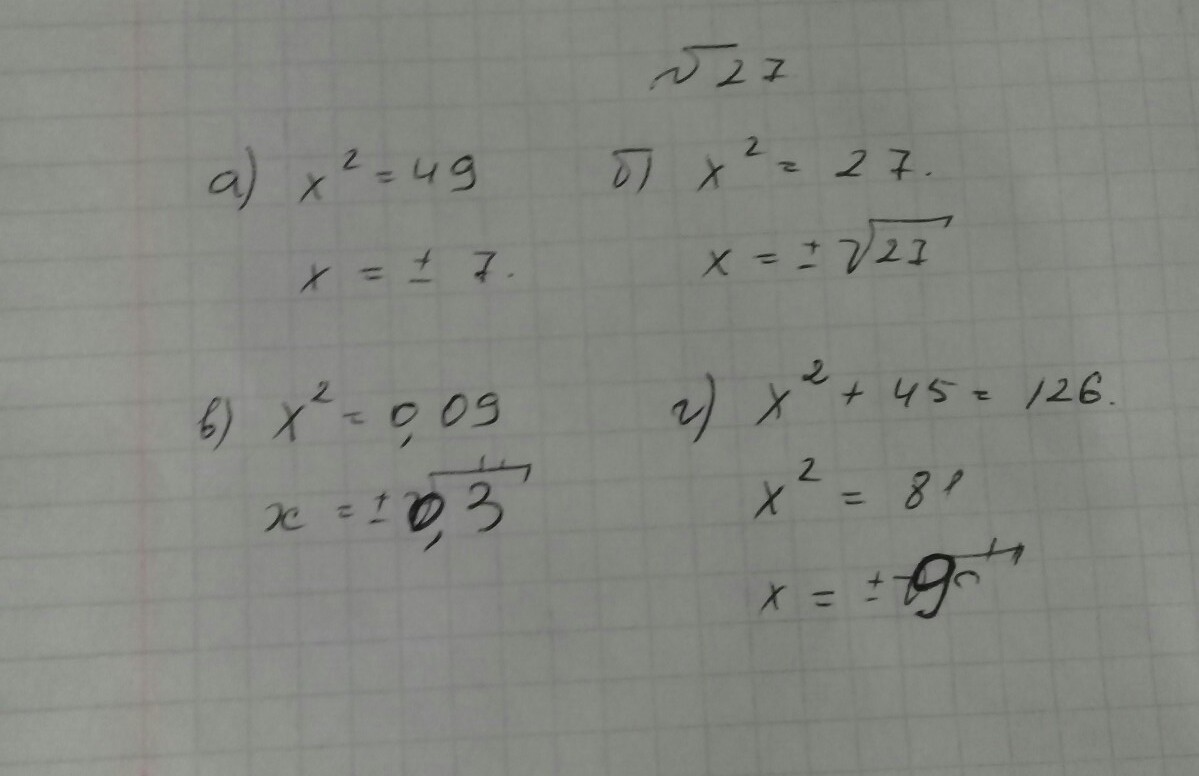 √27
а) x² = 49
x = ± 7.
б) x² = 27.
x = ± √27
в) x² = 0,09
x = ± 0,3
г) x² + 45 = 126.
x² = 81
x = ± 9